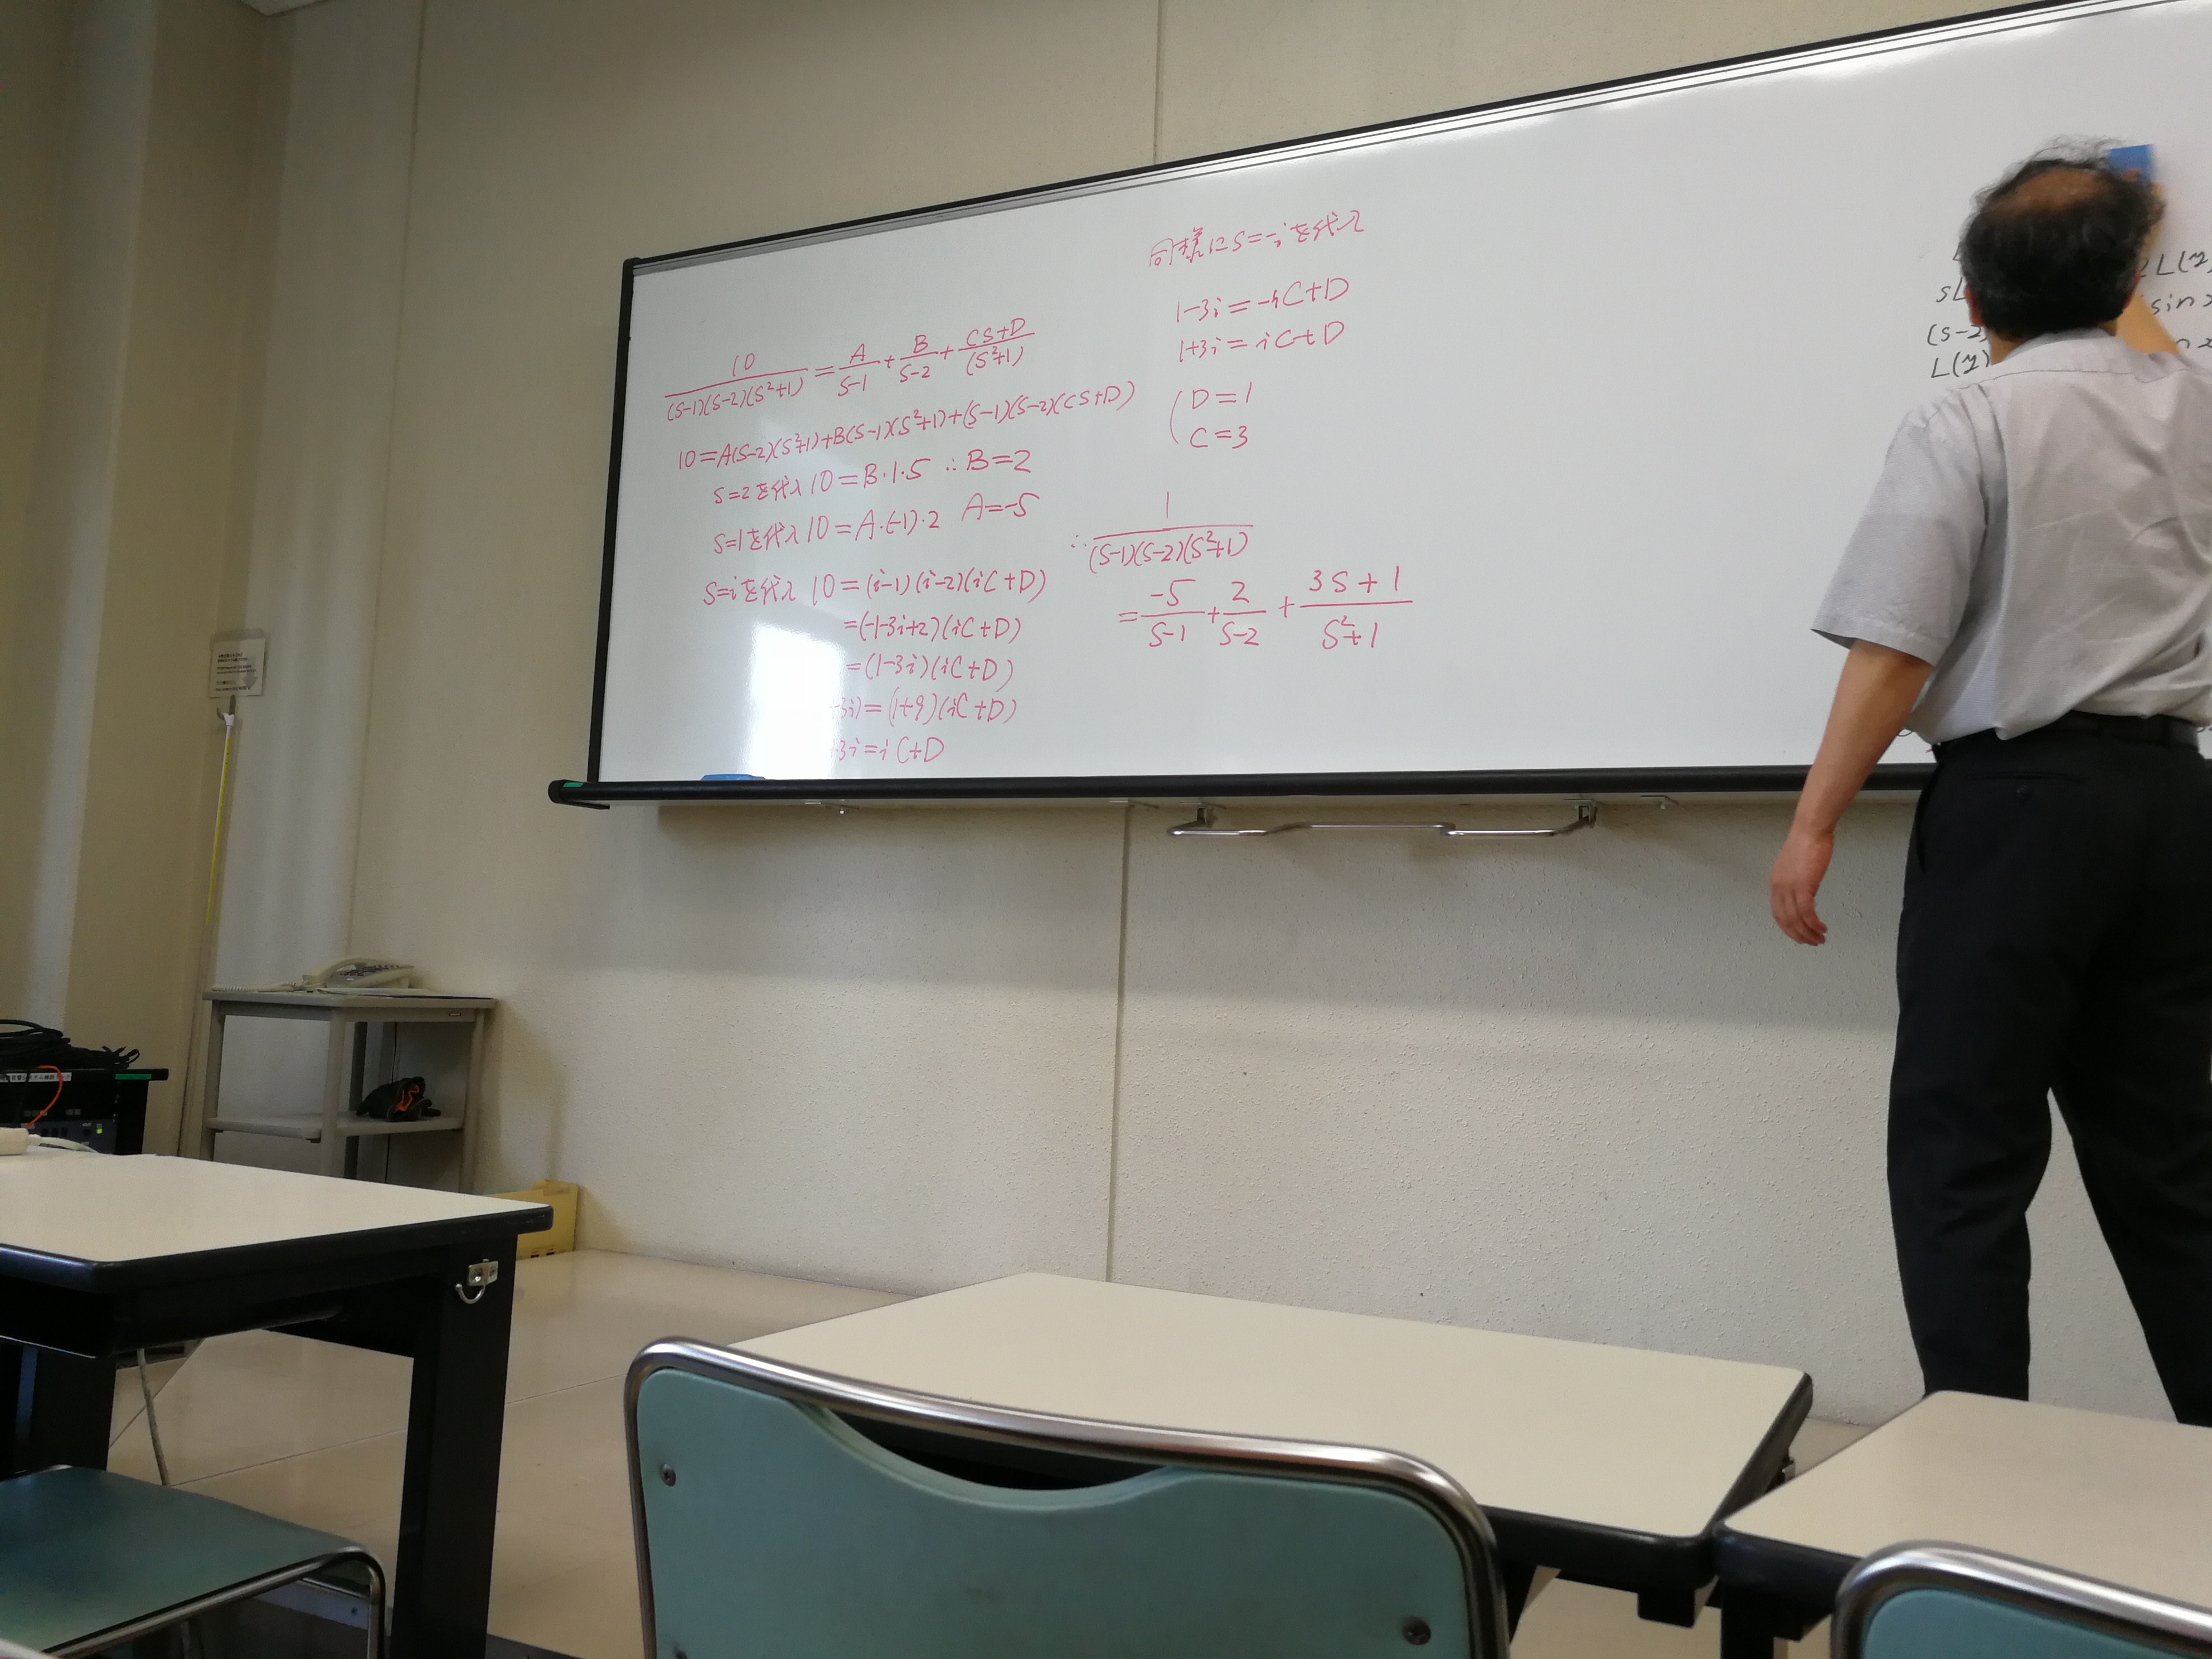 10/((S-1)(S-2)(S²+1)) = A/(S-1) + B/(S-2) + (CS+D)/(S²+1)
10=A(S-2)(S²+1)+B(S-1)(S²+1)+(S-1)(S-2)(CS+D)
S=2を代入 10=B・1・5 ∴B=2
S=1を代入 10=A・(-1)・2 A=-5
S=iを代入 10=(i-1)(i-2)(iC+D)
=(-1-3i+2)(iC+D)
=(1-3i)(iC+D)
3i)=(1+9)(iC+D)
+3i=iC+D
同様にS=-iを代入
1-3i=-iC+D
1+3i=iC+D
( D=1
C=3
∴ 1/((S-1)(S-2)(S²+1))
= -5/(S-1) + 2/(S-2) + (3S+1)/(S²+1)
L(y
sL
sin x
(s-2
L(y)